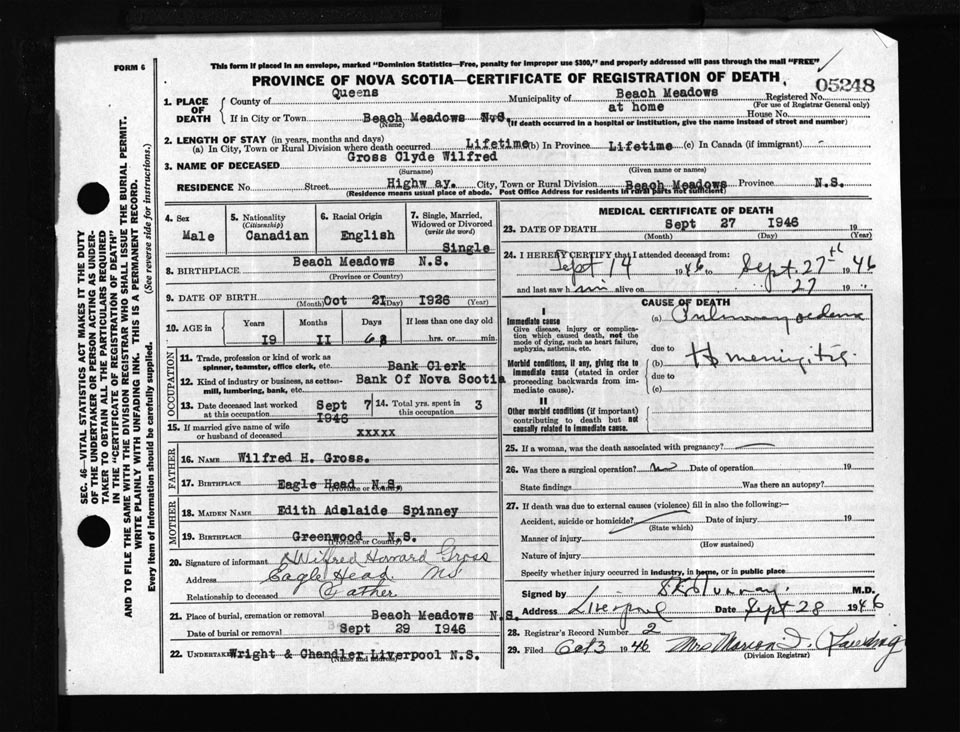 FORM 6
This form if placed in an envelope, marked "Dominion Statistics—Free, penalty for improper use $300," and properly addressed will pass through the mail "FREE"
PROVINCE OF NOVA SCOTIA—CERTIFICATE OF REGISTRATION OF DEATH
05248
1. PLACE OF DEATH County of Queens Municipality of Beach Meadows Registered No.
(For use of Registrar General only)
If in City or Town Beach Meadows N.S. at home House No.
(Name) (If death occurred in a hospital or institution, give the name instead of street and number)
2. LENGTH OF STAY (in years, months and days)
(a) In City, Town or Rural Division where death occurred Lifetime (b) In Province Lifetime (c) In Canada (if immigrant) -
3. NAME OF DECEASED Gross Clyde Wilfred
(Surname) (Given name or names)
RESIDENCE No. Street Highw ay. City, Town or Rural Division Beach Meadows Province N.S.
(Residence means usual place of abode. Post Office Address for residents in rural parts not sufficient)
4. Sex Male
5. Nationality (Citizenship) Canadian
6. Racial Origin English
7. Single, Married, Widowed or Divorced (write the word) Single
8. BIRTHPLACE Beach Meadows N.S.
(Province or Country)
9. DATE OF BIRTH (Month) Oct 21 (Day) 1926 (Year)
10. AGE in Years Months Days If less than one day old
19 11 6 hrs. or min.
OCCUPATION
11. Trade, profession or kind of work as spinner, teamster, office clerk, etc. Bank Clerk
12. Kind of industry or business, as cotton-mill, lumbering, bank, etc. Bank Of Nova Scotia
13. Date deceased last worked at this occupation Sept 7 1946
14. Total yrs. spent in this occupation 3
15. If married give name of wife or husband of deceased xxxxx
FATHER
16. NAME Wilfred H. Gross.
17. BIRTHPLACE Eagle Head N.S.
(Province or Country)
MOTHER
18. MAIDEN NAME Edith Adelaide Spinney
19. BIRTHPLACE Greenwood N.S.
(Province or Country)
20. Signature of informant Wilfred Howard Gross
Address Eagle Head. NS
Relationship to deceased Father
21. Place of burial, cremation or removal Beach Meadows N.S.
Date of burial or removal Sept 29 1946
22. UNDERTAKER Wright & Chandler Liverpool N.S.
(Name and address)
MEDICAL CERTIFICATE OF DEATH
23. DATE OF DEATH Sept 27 1946 19
(Month) (Day) (Year)
24. I HEREBY CERTIFY that I attended deceased from:
Sept 14 1946 to Sept. 27th 1946
and last saw him alive on 27 19
CAUSE OF DEATH
I
Immediate cause
Give disease, injury or complication which caused death, not the mode of dying, such as heart failure, asphyxia, asthenia, etc.
(a) Pulmonary oedema
due to
Morbid conditions, if any, giving rise to immediate cause (stated in order proceeding backwards from immediate cause).
(b) meningitis.
due to
(c)
II
Other morbid conditions (if important) contributing to death but not causally related to immediate cause.
25. If a woman, was the death associated with pregnancy?
26. Was there a surgical operation? no Date of operation 19
State findings Was there an autopsy?
27. If death was due to external causes (violence) fill in also the following:—
Accident, suicide or homicide? Date of injury 19
(State which)
Manner of injury
(How sustained)
Nature of injury
Specify whether injury occurred in industry, in home, or in public place
Signed by Murray. M.D.
Address Liverpool Date Sept 28 1946
28. Registrar's Record Number 2
29. Filed Oct 3 1946 Mrs Marion I.
(Division Registrar)
SEC. 46—VITAL STATISTICS ACT MAKES IT THE DUTY
OF THE UNDERTAKER OR PERSON ACTING AS UNDER-
TAKER TO OBTAIN ALL THE PARTICULARS REQUIRED
IN THE "CERTIFICATE OF REGISTRATION OF DEATH"
AND TO FILE THE SAME WITH THE DIVISION REGISTRAR WHO SHALL ISSUE THE BURIAL PERMIT.
WRITE PLAINLY WITH UNFADING INK. THIS IS A PERMANENT RECORD.
Every item of information should be carefully supplied. (See reverse side for instructions.)